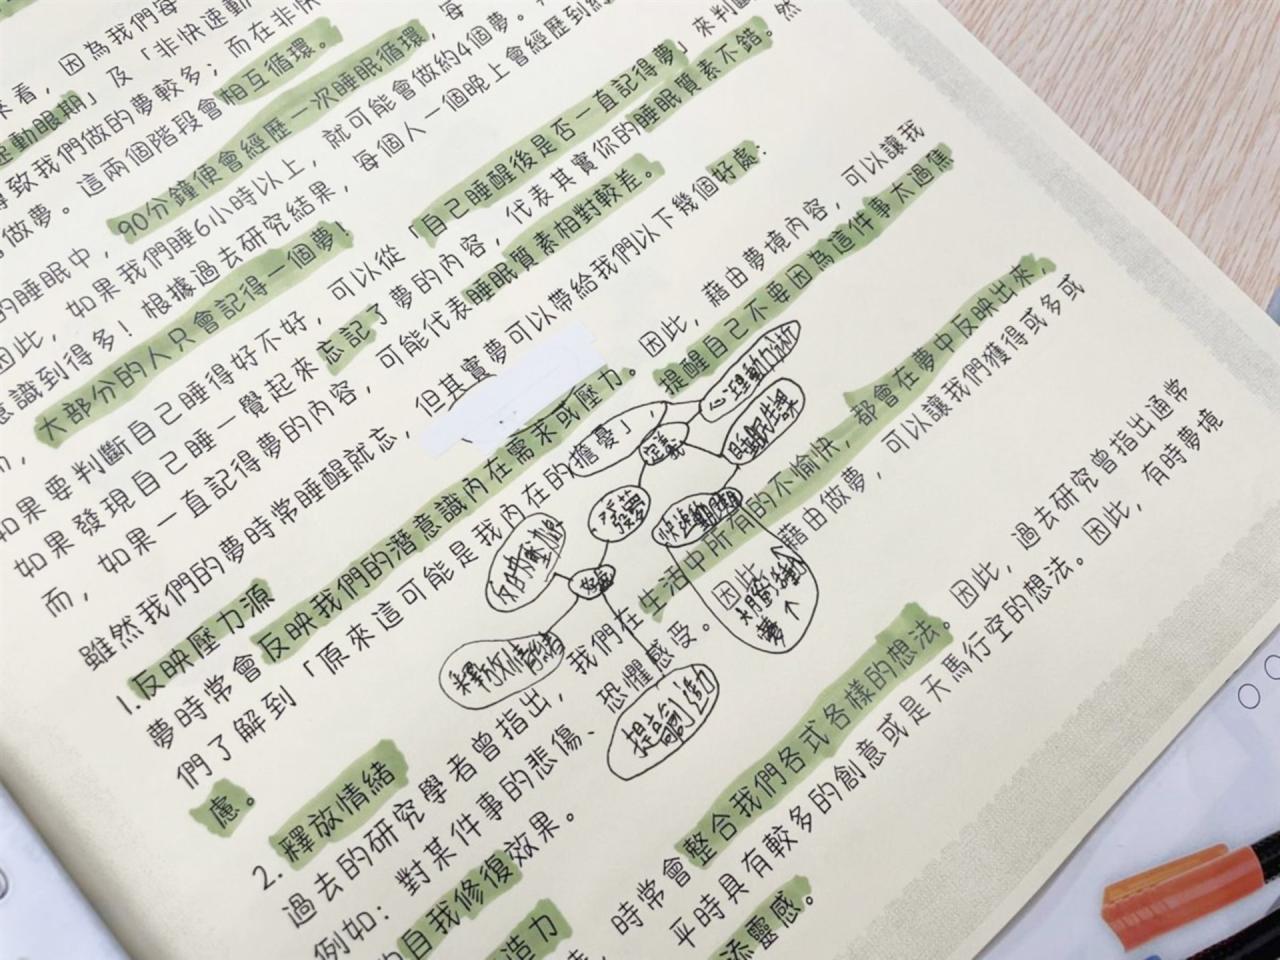 來看，因為我們每
速動眼期」及「非快速動
導致我們做的夢較多；而在非快
做夢。這兩個階段會相互循環。
的睡眠中，90分鐘便會經歷一次睡眠循環，每
因此，如果我們睡6小時以上，就可能會做約4個夢。
意識到得多！根據過去研究結果，每個人一個晚上會經歷到
大部分的人只會記得一個夢！
如果要判斷自己睡得好不好，可以從「自己睡醒後是否一直記得夢」來判斷
如果發現自己睡一覺起來忘記了夢的內容，代表其實你的睡眠質素不錯。然
而，如果一直記得夢的內容，可能代表睡眠質素相對較差。
雖然我們的夢時常睡醒就忘，但其實夢可以帶給我們以下幾個好處：
1.反映壓力源
夢時常會反映我們的潛意識內在需求或壓力。因此，藉由夢境內容，可以讓我
們了解到「原來這可能是我內在的擔憂」，提醒自己不要因為這件事太過焦
慮。
2.釋放情緒
過去的研究學者曾指出，我們在生活中所有的不愉快，都會在夢中反映出來，
例如：對某件事的悲傷、恐懼感受。因此藉由做夢，可以讓我們獲得或多或
自我修復效果。
造力
時常會整合我們各式各樣的想法。因此，過去研究曾指出通常
平時具有較多的創意或是天馬行空的想法。因此，有時夢境
添靈感。
心理動力分析
定義
睡眠生理
發夢
快速動眼期
反映壓力源
好處
釋放情緒
提高創造力
夢↑